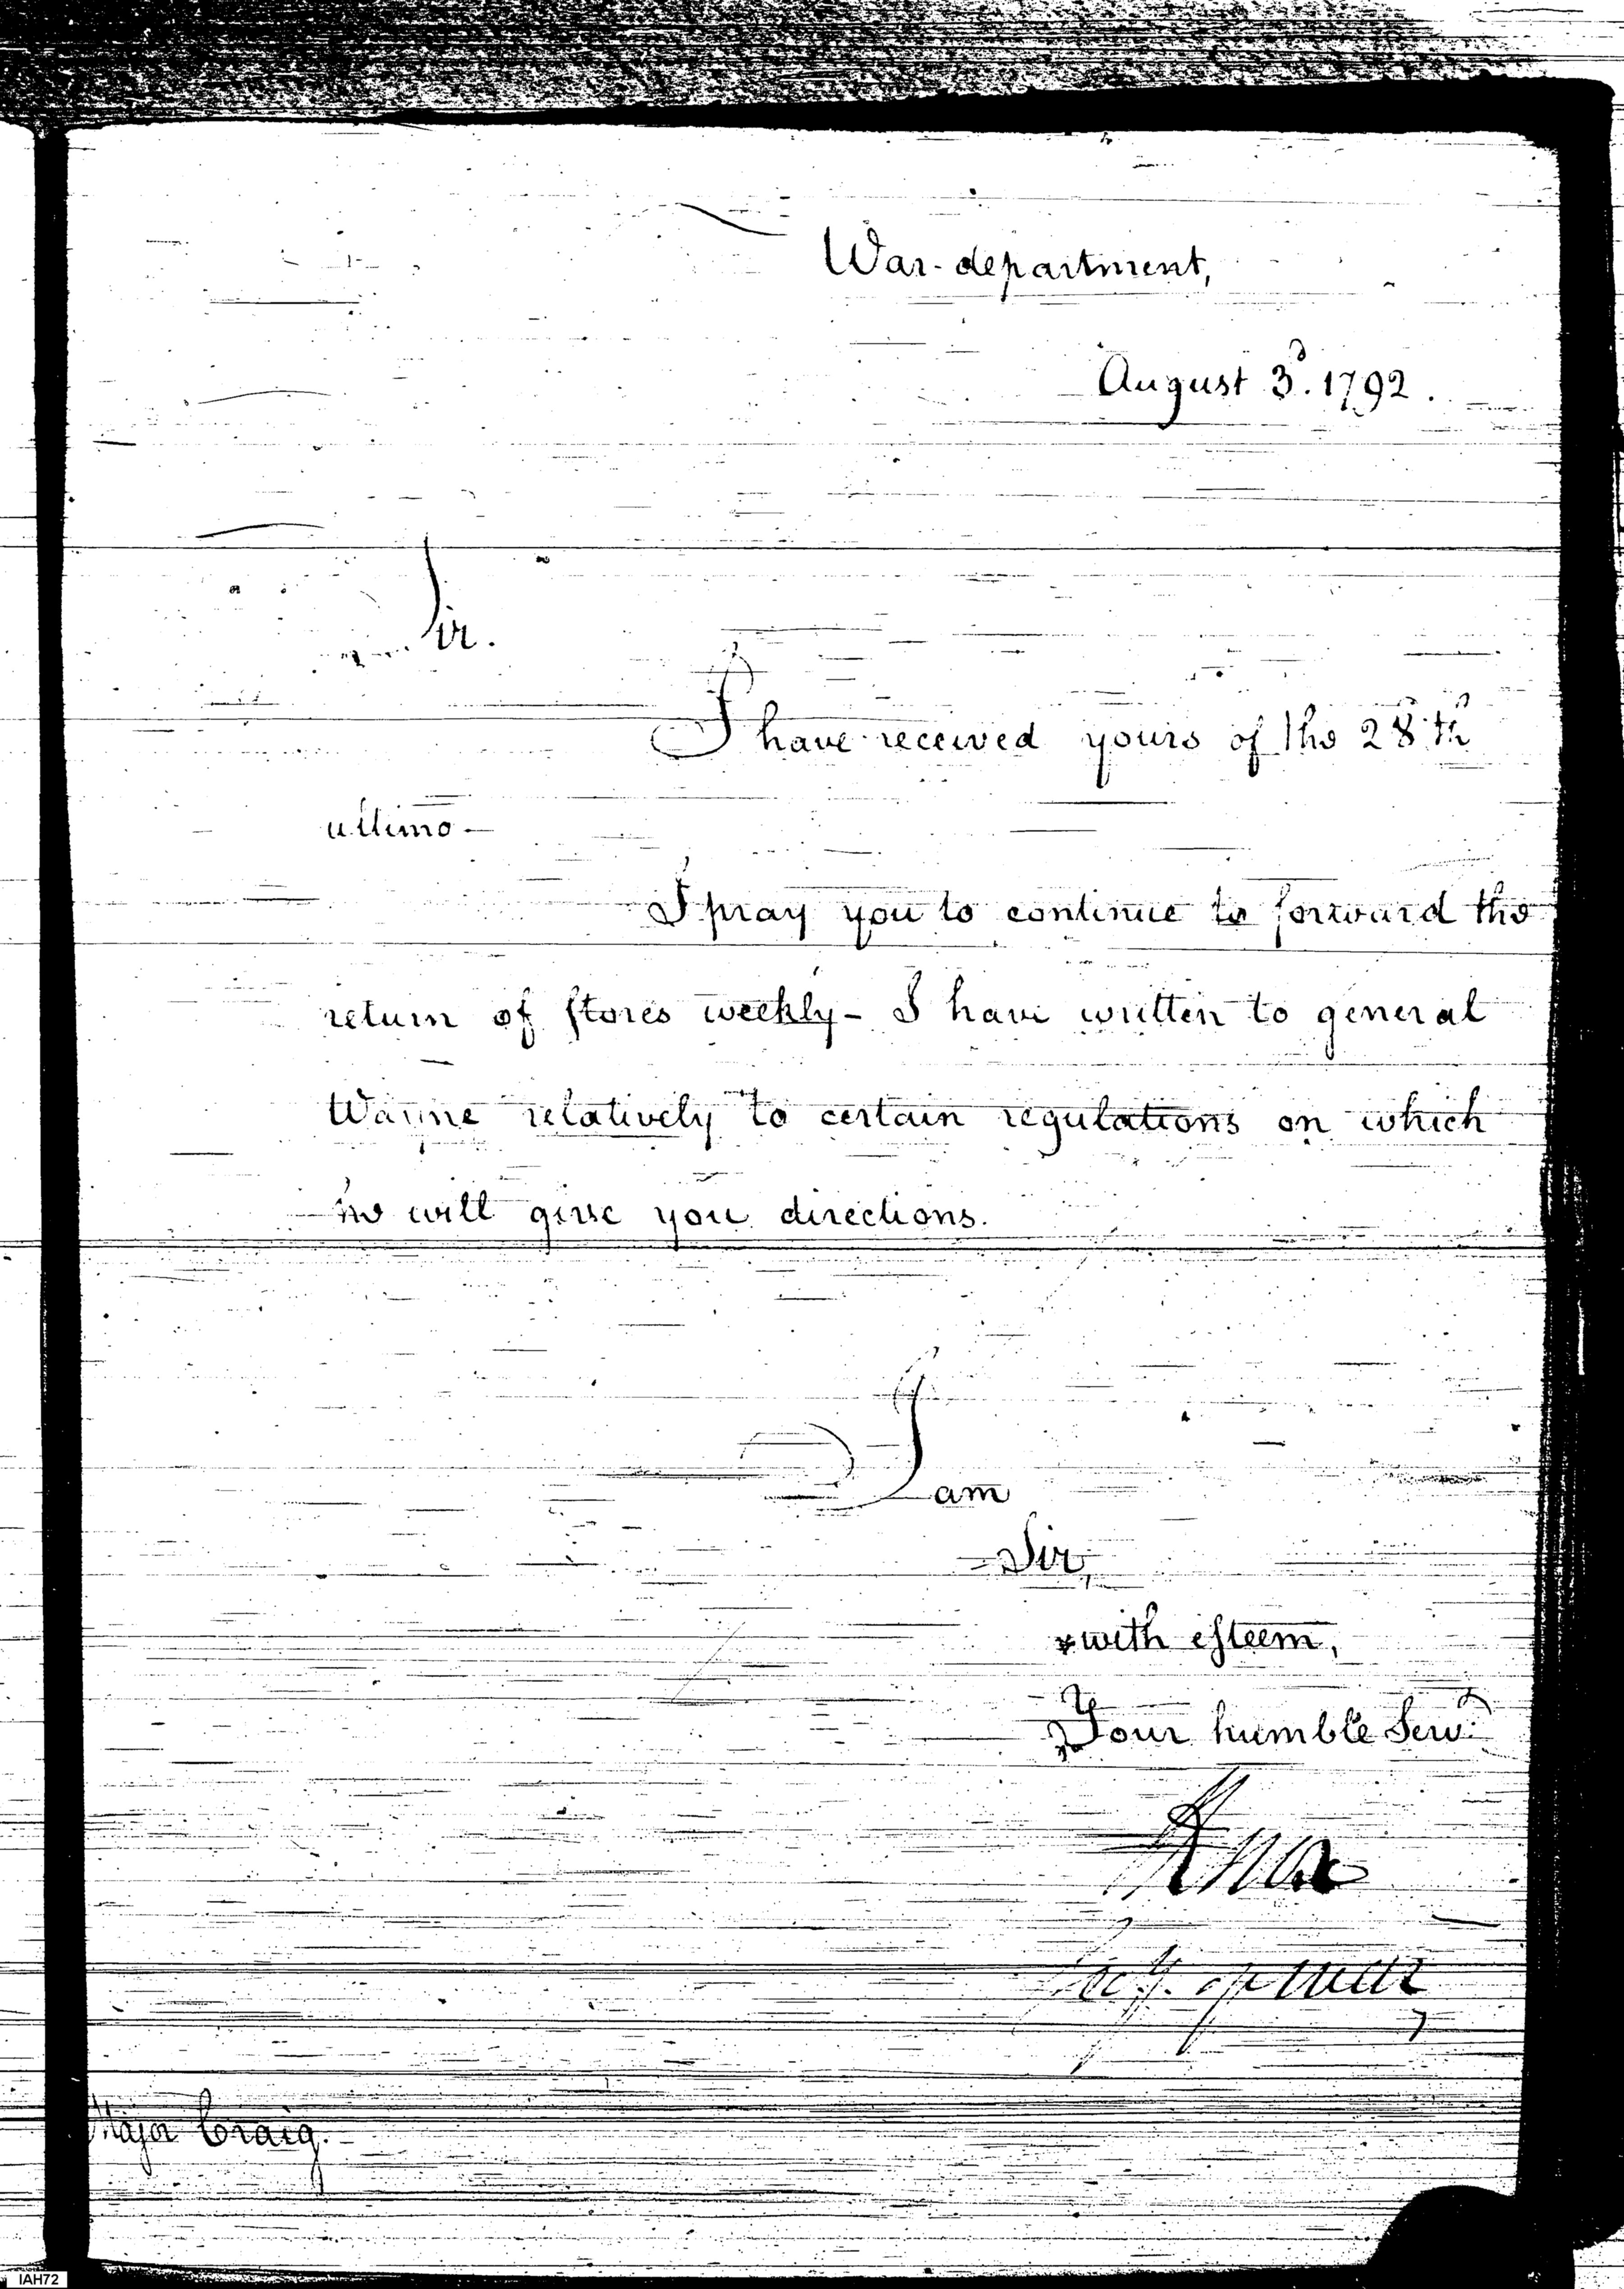 War-department,
August 3d. 1792.
Sir.
I have received yours of the 28th
ultimo—
I pray you to continue to forward the
return of stores weekly— I have written to general
Wayne relatively to certain regulations on which
he will give you directions.
I am
Sir,
with esteem,
Your humble Servt
HKnox
Secy. of war
Major Craig.
IAH72